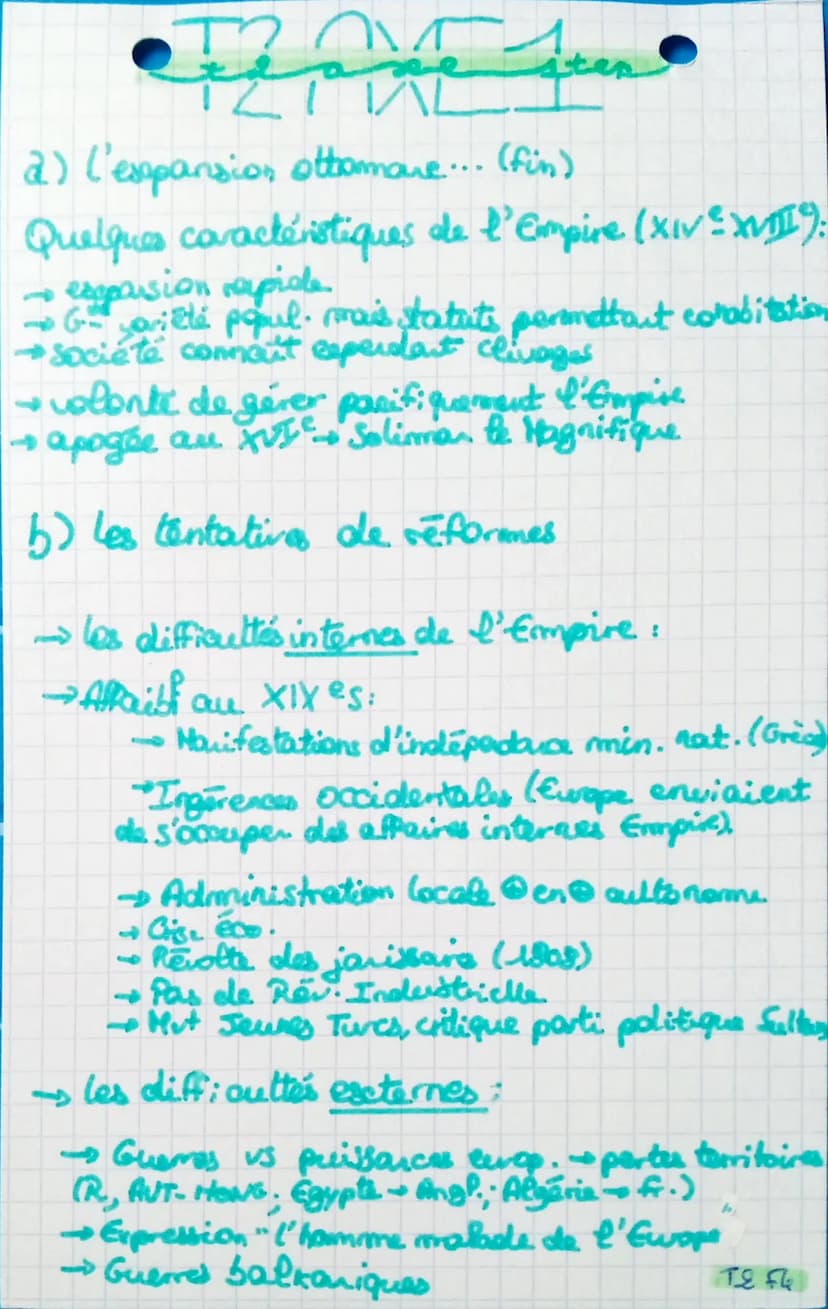 T2 AXE 1
t2 axe 1ter
a) l'expansion ottomane... (fin)
Quelques caractéristiques de l'Empire (XIVe-XVIIIe):
→ expansion rapide
→ Gde variété popul. mais statuts permettant cohabitation
→ société connaît cependant clivages
→ volonté de gérer pacifiquement l'Empire
→ apogée au XVIe → Soliman le Magnifique
b) les tentatives de réformes
→ les difficultés internes de l'Empire :
→ Affaibl au XIXes:
→ Manifestations d'indépendance min. nat. (Grèce)
→ Ingérences occidentales (Europe enviaient
de s'occuper des affaires internes Empire)
→ Administration locale ⊕ en ⊕ autonome
→ Crise éco.
→ Révolte des janissaire (1808)
→ Pas de Rév. Industrielle
→ Mvt Jeunes Turcs, critique parti politique Sultan
→ les difficultés externes :
→ Guerres vs puissances europ. → pertes territoires
(R, AUT-HONG; Egypte → Angl.; Algérie → fr.)
→ Expression "l'homme malade de l'Europe
→ Guerres balkaniques
T2 F4